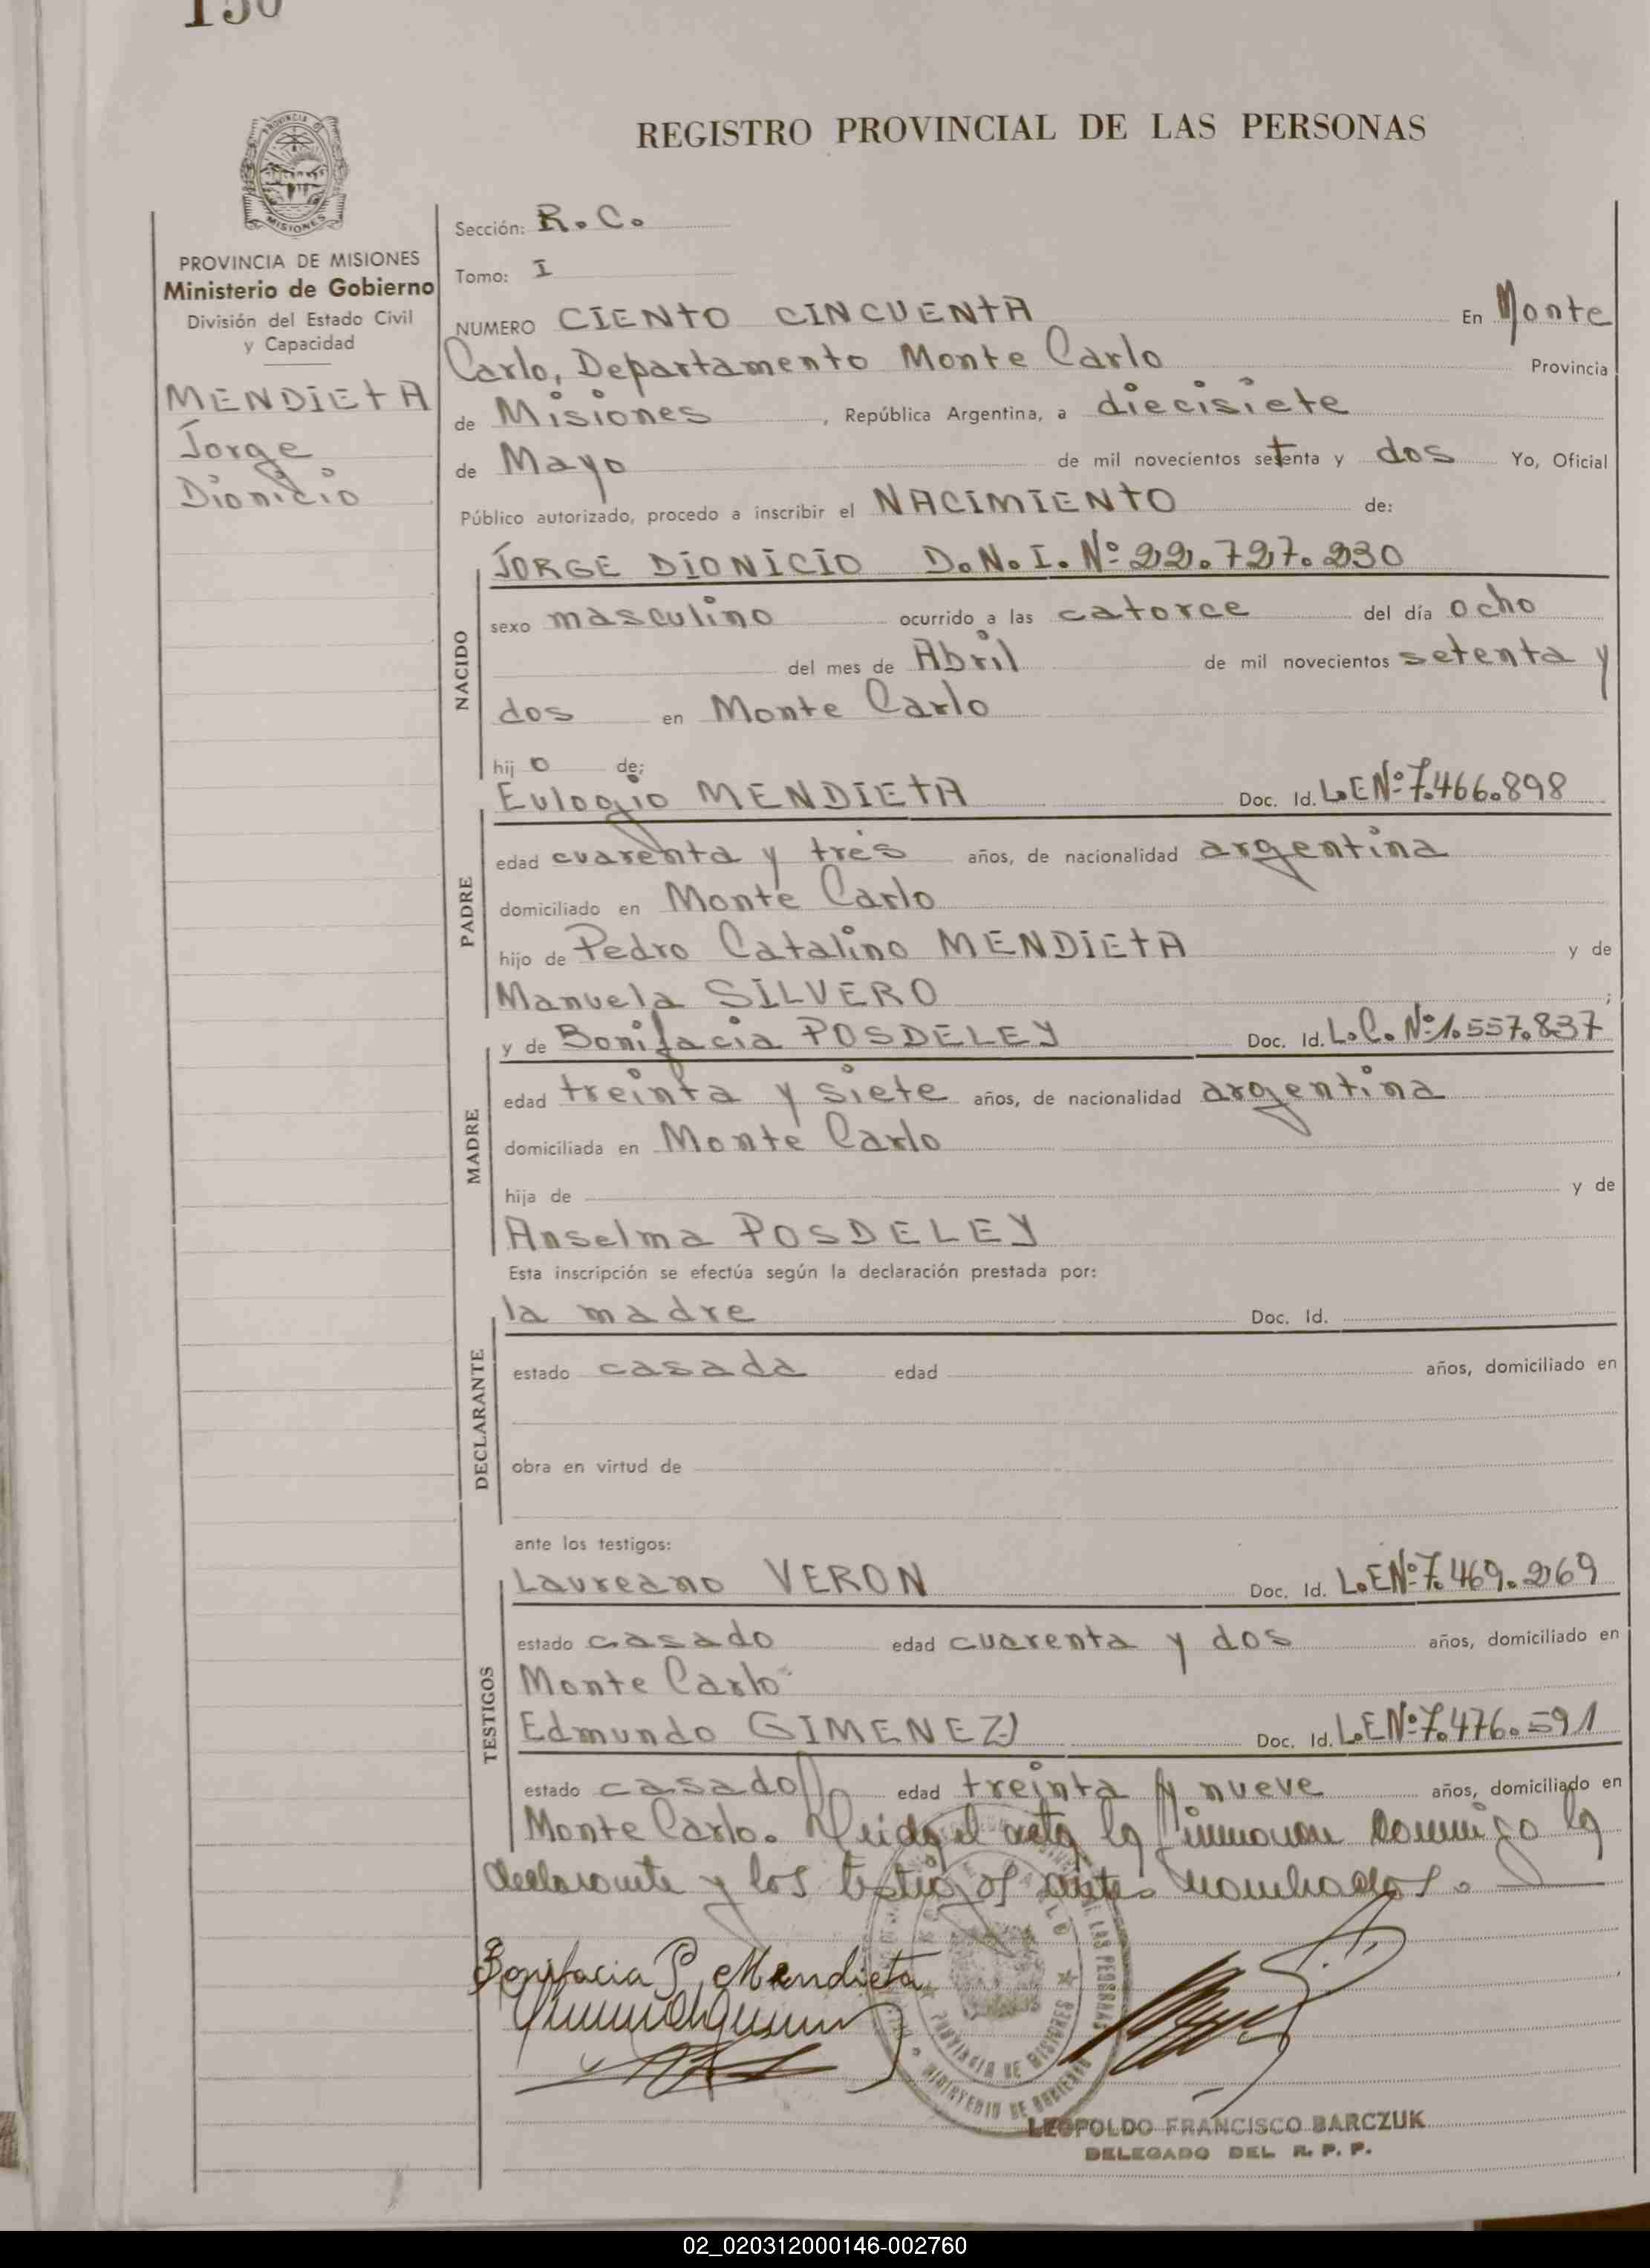 150
REGISTRO PROVINCIAL DE LAS PERSONAS
PROVINCIA
MISIONES
PROVINCIA DE MISIONES
Ministerio de Gobierno
División del Estado Civil
y Capacidad
MENDIETA
Jorge
Dionicio
Sección: R.C.
Tomo: I
NUMERO CIENTO CINCUENTA En Monte
Carlo, Departamento Monte Carlo Provincia
de Misiones, República Argentina, a diecisiete
de Mayo de mil novecientos setenta y dos Yo, Oficial
Público autorizado, procedo a inscribir el NACIMIENTO de:
NACIDO
JORGE DIONICIO D.N.I. Nº 22.727.230
sexo masculino ocurrido a las catorce del día ocho
del mes de Abril de mil novecientos setenta y
dos en Monte Carlo
hij o de;
PADRE
Eulogio MENDIETA Doc. Id. L.E Nº 7.466.898
edad cuarenta y tres años, de nacionalidad argentina
domiciliado en Monte Carlo
hijo de Pedro Catalino MENDIETA y de
Manuela SILVERO ;
MADRE
y de Bonifacia POSDELEY Doc. Id. L.C. Nº 1.557.837
edad treinta y siete años, de nacionalidad argentina
domiciliada en Monte Carlo
hija de y de
Anselma POSDELEY
Esta inscripción se efectúa según la declaración prestada por:
DECLARANTE
la madre Doc. Id.
estado casada edad años, domiciliado en
obra en virtud de
ante los testigos:
TESTIGOS
Laureano VERON Doc. Id. L.E Nº 7.469.269
estado casado edad cuarenta y dos años, domiciliado en
Monte Carlo
Edmundo GIMENEZ Doc. Id. L.E Nº 7.476.591
estado casado edad treinta y nueve años, domiciliado en
Monte Carlo. Leida el acta la conmigo la
declarante y los testigos antes nombrados.
Bonifacia P. Mendieta
PROVINCIA DE MISIONES
MINISTERIO DE GOBIERNO
LEOPOLDO FRANCISCO BARCZUK
DELEGADO DEL R. P. P.
02_020312000146-002760